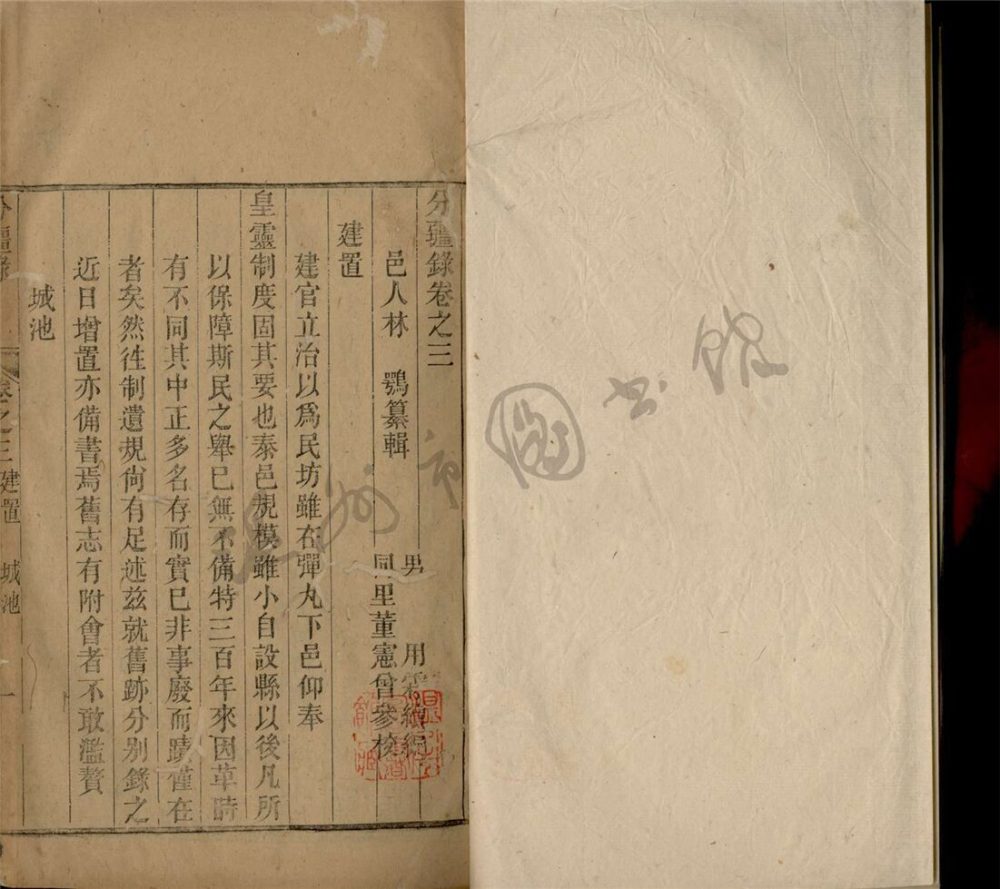 分疆錄卷之三
邑人林　鶚纂輯
男　　用霖續編
同里董憲曾參校
建置
建官立治以爲民坊雖在彈丸下邑仰奉
皇靈制度固其要也泰邑規模雖小自設縣以後凡所
以保障斯民之舉已無不備特三百年來因革時
有不同其中正多名存而實已非事廢而蹟僅在
者矣然徃制遺規尙有足述茲就舊跡分别錄之
近日增置亦備書焉舊志有附會者不敢濫贅
城池
分疆錄
卷之三建置　城池　一
市圖書館